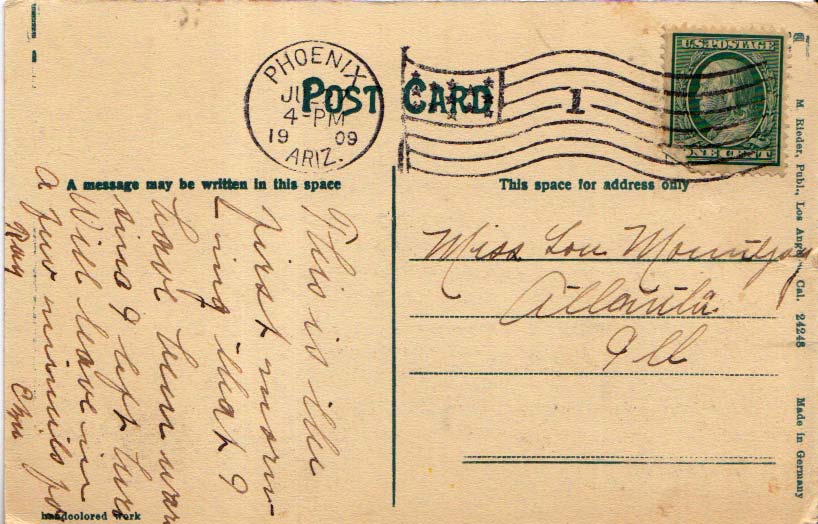 PHOENIX
JUL
4-PM
19 09
ARIZ.
POST CARD
1
U.S. POSTAGE
ONE CENT
A message may be written in this space
This space for address only
This is the
first morn-
ing that I
have been
since I left
Will leave in
a few minutes for
Ray
Miss Lou Mountjoy
Atlanta
Ill
M. Rieder, Publ., Los Angeles, Cal. 24248
Made in Germany
handcolored work